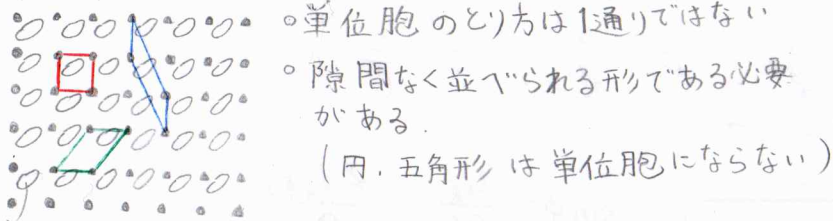 ○単位胞のとり方は1通りではない
○隙間なく並べられる形である必要
がある.
(円,五角形は単位胞にならない)